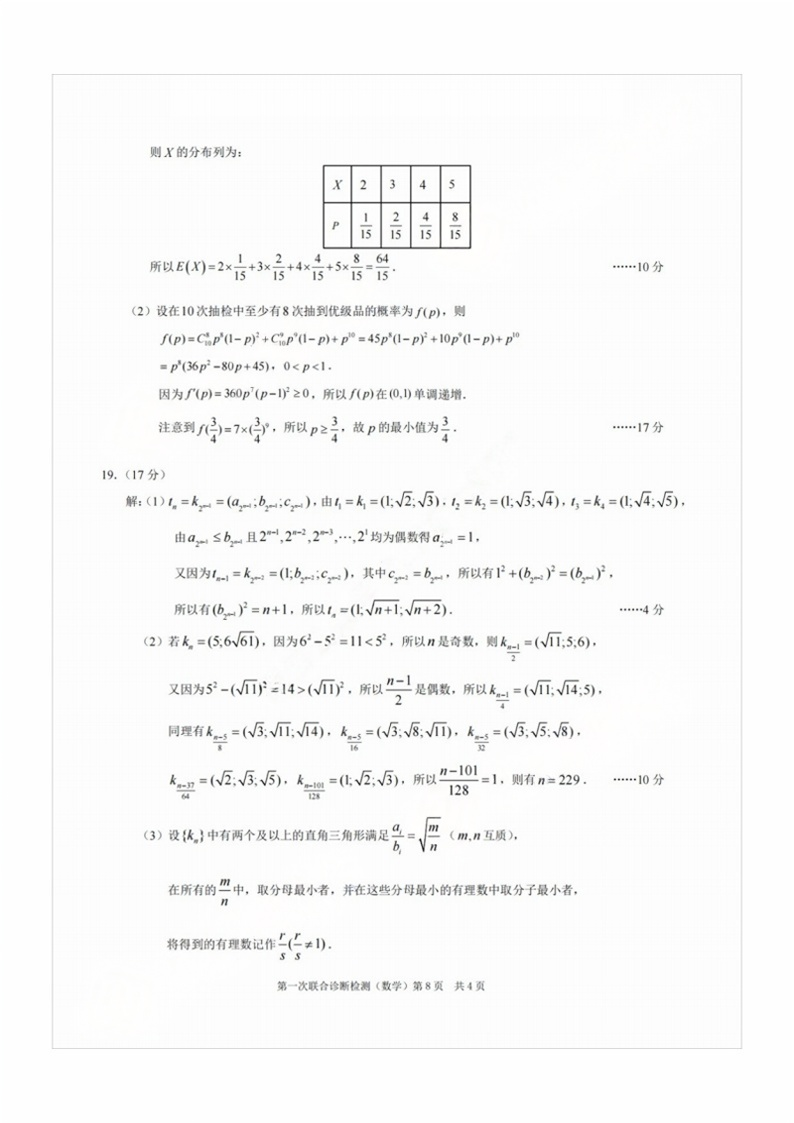 则 X 的分布列为：
X 2 3 4 5
P 1/15 2/15 4/15 8/15
所以 E(X)=2×1/15+3×2/15+4×4/15+5×8/15=64/15． ……10 分
（2）设在10次抽检中至少有8次抽到优级品的概率为 f(p)，则
f(p)=C₁₀⁸p⁸(1−p)²+C₁₀⁹p⁹(1−p)+p¹⁰=45p⁸(1−p)²+10p⁹(1−p)+p¹⁰
=p⁸(36p²−80p+45)，0<p<1．
因为 f′(p)=360p⁷(p−1)²≥0，所以 f(p) 在(0,1)单调递增．
注意到 f(3/4)=7×(3/4)⁹，所以 p≥3/4，故 p 的最小值为 3/4． ……17 分
19．（17 分）
解：（1）t_n=k_{2^{n−1}}=(a_{2^{n−1}};b_{2^{n−1}};c_{2^{n−1}})，由 t₁=k₁=(1;√2;√3)，t₂=k₂=(1;√3;√4)，t₃=k₄=(1;√4;√5)，
由 a_{2^{n−1}}≤b_{2^{n−1}} 且 2^{n−1},2^{n−2},2^{n−3},⋯,2¹ 均为偶数得 a_{2^{n−1}}=1，
又因为 t_{n−1}=k_{2^{n−2}}=(1;b_{2^{n−2}};c_{2^{n−2}})，其中 c_{2^{n−2}}=b_{2^{n−1}}，所以有 1²+(b_{2^{n−2}})²=(b_{2^{n−1}})²，
所以有 (b_{2^{n−1}})²=n+1，所以 t_n=(1;√n+1;√n+2)． ……4 分
（2）若 k_n=(5;6√61)，因为 6²−5²=11<5²，所以 n 是奇数，则 k_{(n−1)/2}=(√11;5;6)，
又因为 5²−(√11)²=14>(√11)²，所以 (n−1)/2 是偶数，所以 k_{(n−1)/4}=(√11;√14;5)，
同理有 k_{(n−5)/8}=(√3;√11;√14)，k_{(n−5)/16}=(√3;√8;√11)，k_{(n−5)/32}=(√3;√5;√8)，
k_{(n−37)/64}=(√2;√3;√5)，k_{(n−101)/128}=(1;√2;√3)，所以 (n−101)/128=1，则有 n=229． ……10 分
（3）设{k_n}中有两个及以上的直角三角形满足 a_i/b_i=√(m/n)（m,n 互质），
在所有的 m/n 中，取分母最小者，并在这些分母最小的有理数中取分子最小者，
将得到的有理数记作 r/s(r/s≠1)．
第一次联合诊断检测（数学）第 8 页 共 4 页